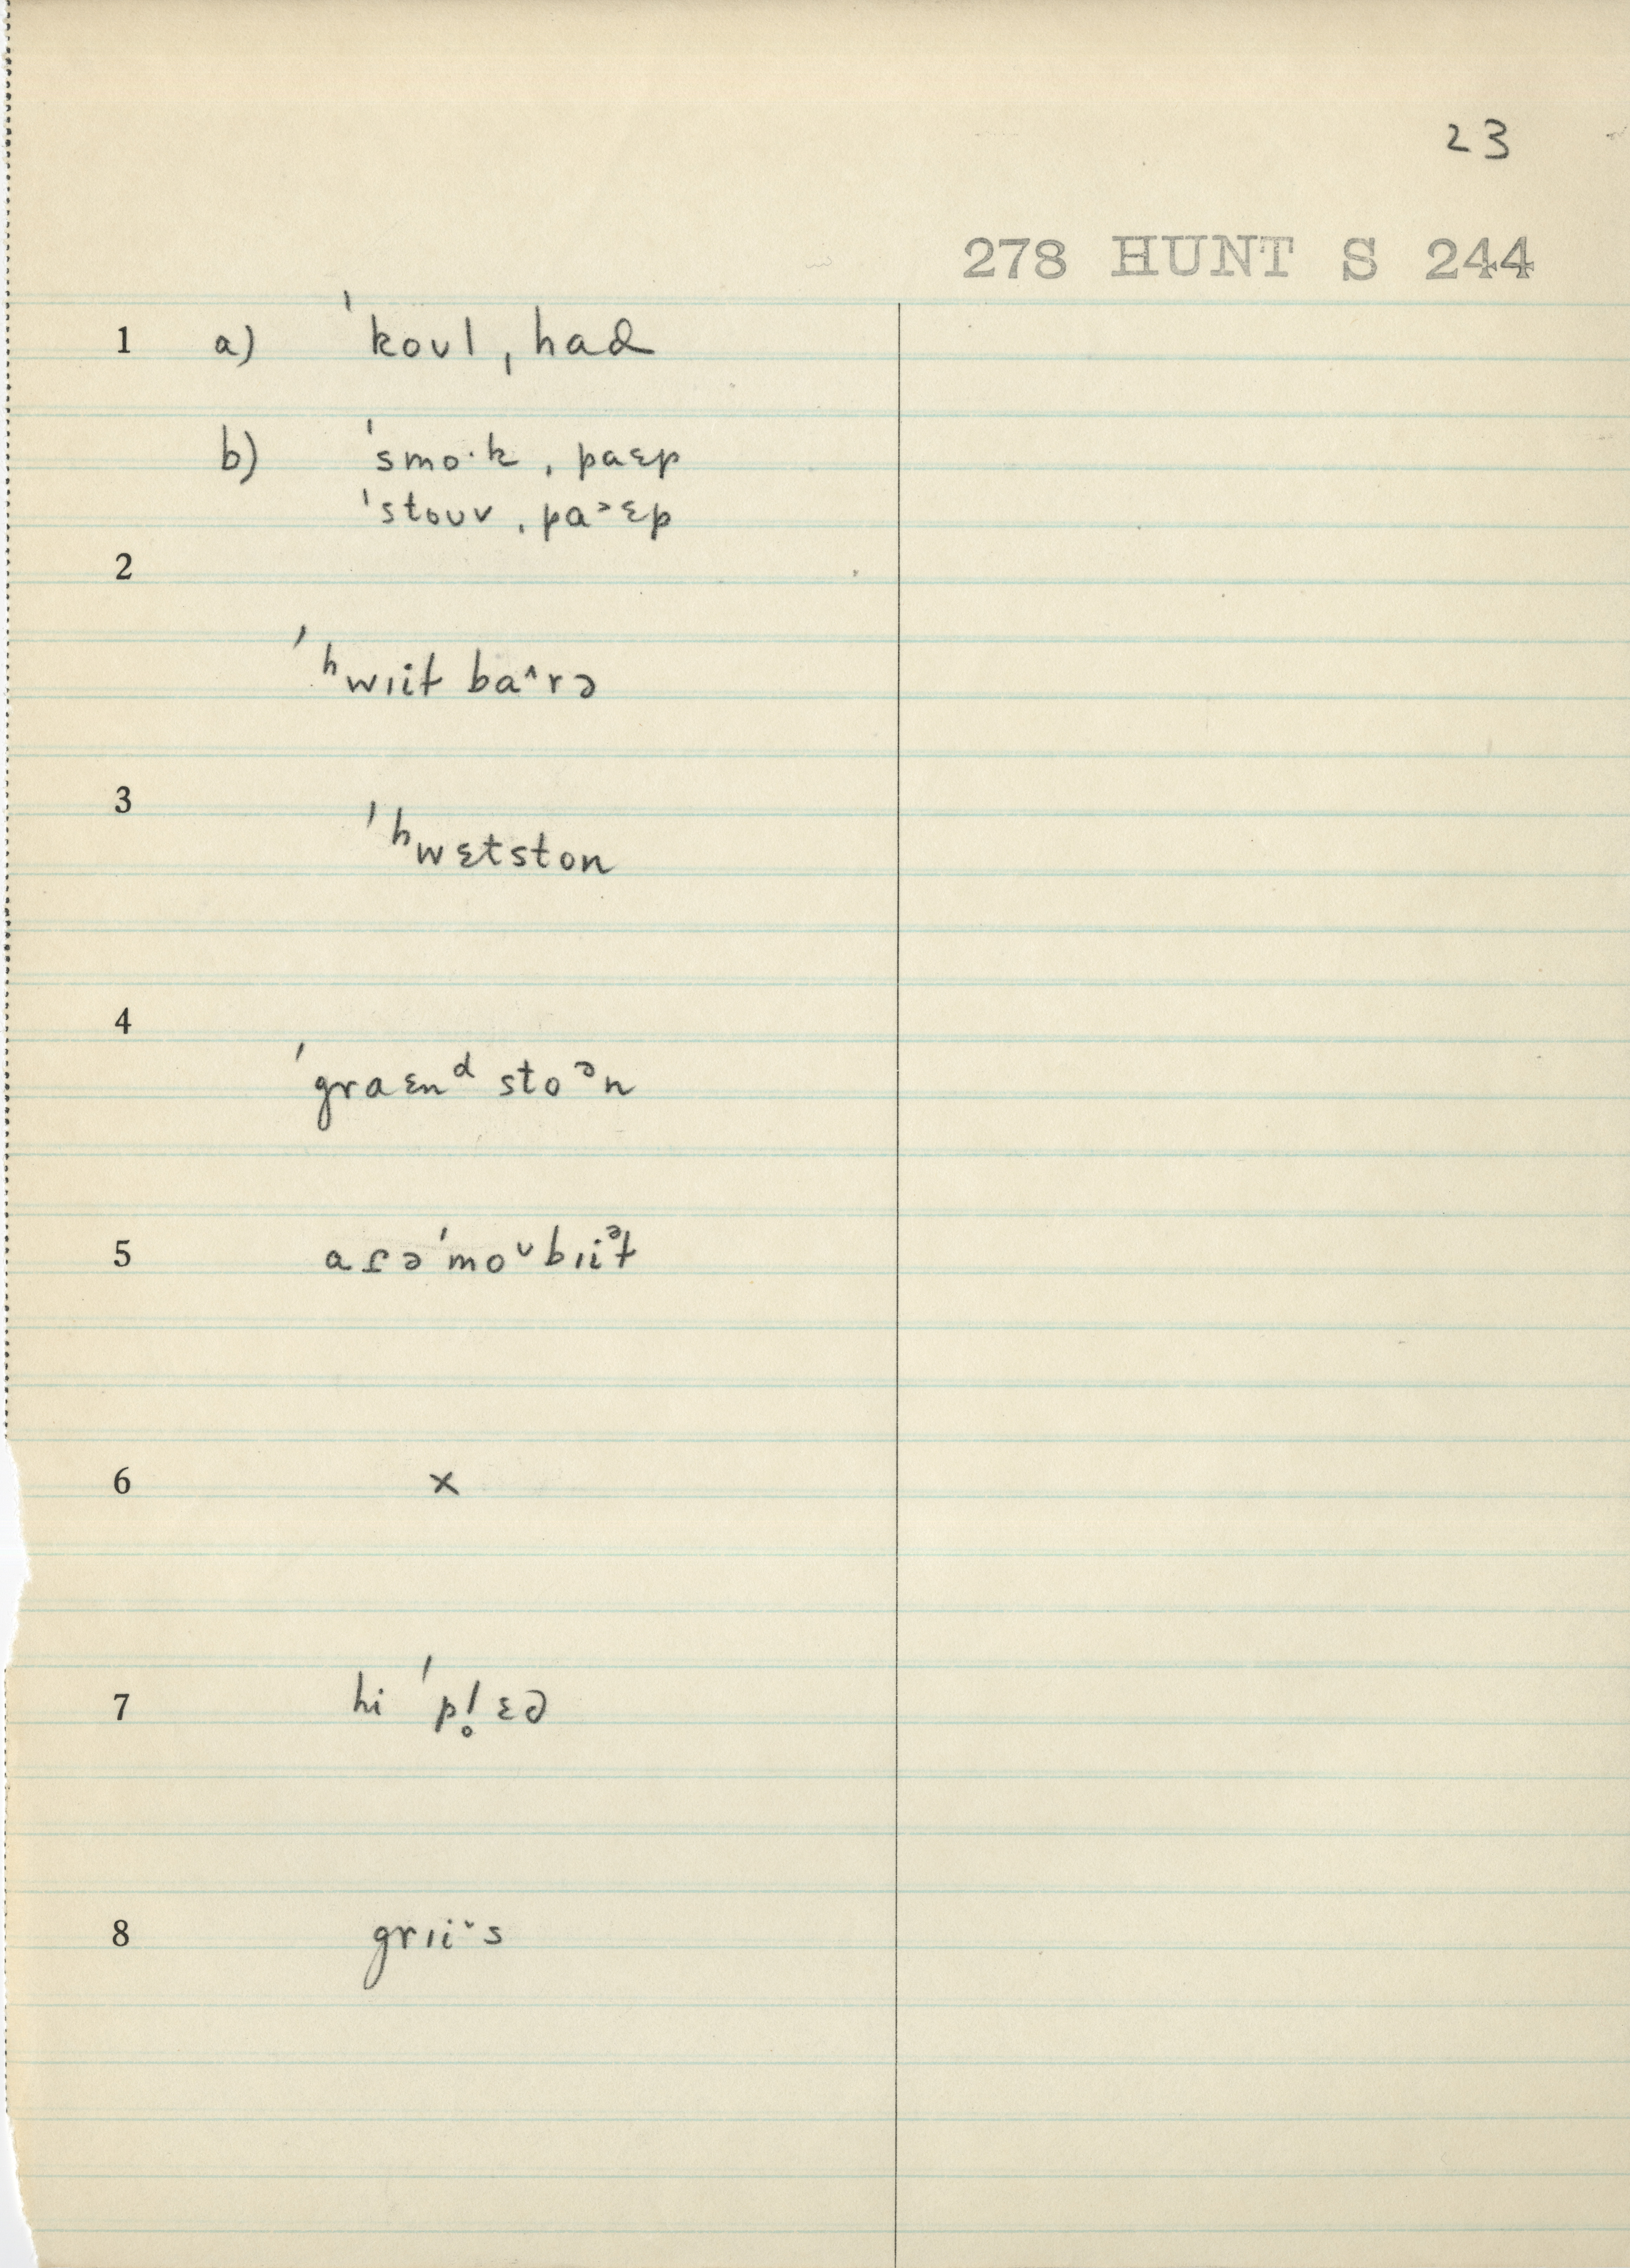 23
278 HUNT S 244
1 a) ˈkoʊl ˌhad
b) ˈsmo·k ˌpaɛp
ˈstoʊv ˌpa˃ɛp
2
ˈʰwɪiɫ ba˄rə
3
ˈʰwɛtston
4
ˈgraɛnᵈ stoᵊn
5 aɾəˈmoᵛbɪiᵊɫ
6 x
7 hi ˈpl̥ɛə
8 grɪi˅s